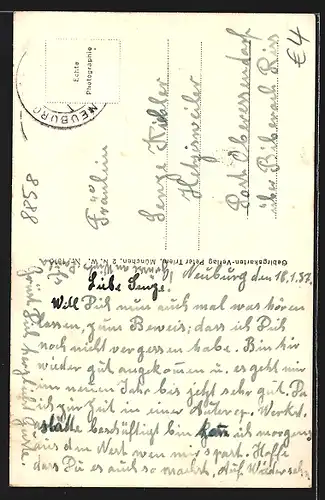 Neuburg den 18.1.37.
Liebe Senze!
Will Dich nun auch mal was hören
lassen, zum Beweis; dass ich Dich
noch nicht vergessen habe. Bin hir
wieder gut angekommen u. es geht mir
im neuen Jahr bis jetzt sehr gut. Da
ich zur Zeit in einer Autorep. Werkst
stätte beschäftigt bin kann ich morgens
aus dem Nest wen mirs passt. Hoffe
dass Du es auch so machst, Auf Wiedersehn
Grüst Dich herzlich
Fräulein
Senze Kibler
Hetzisweiler
Post Oberessendorf
über Biberach Riss
Echte
Photographie
NEUBURG
Gebirgskarten-Verlag Peter Trien, München, 2 N. W.
8858
€4